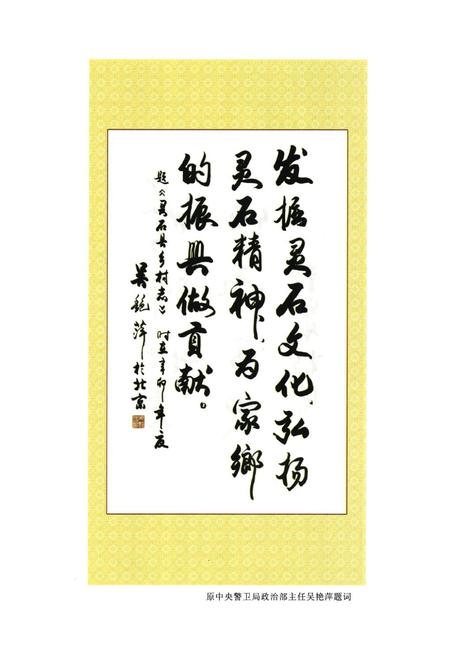 发掘灵石文化、弘扬
灵石精神、为家鄉
的振興做貢献。
题《灵石县乡村志》 时在辛卯年夏
吴艳萍於北京
原中央警卫局政治部主任吴艳萍题词